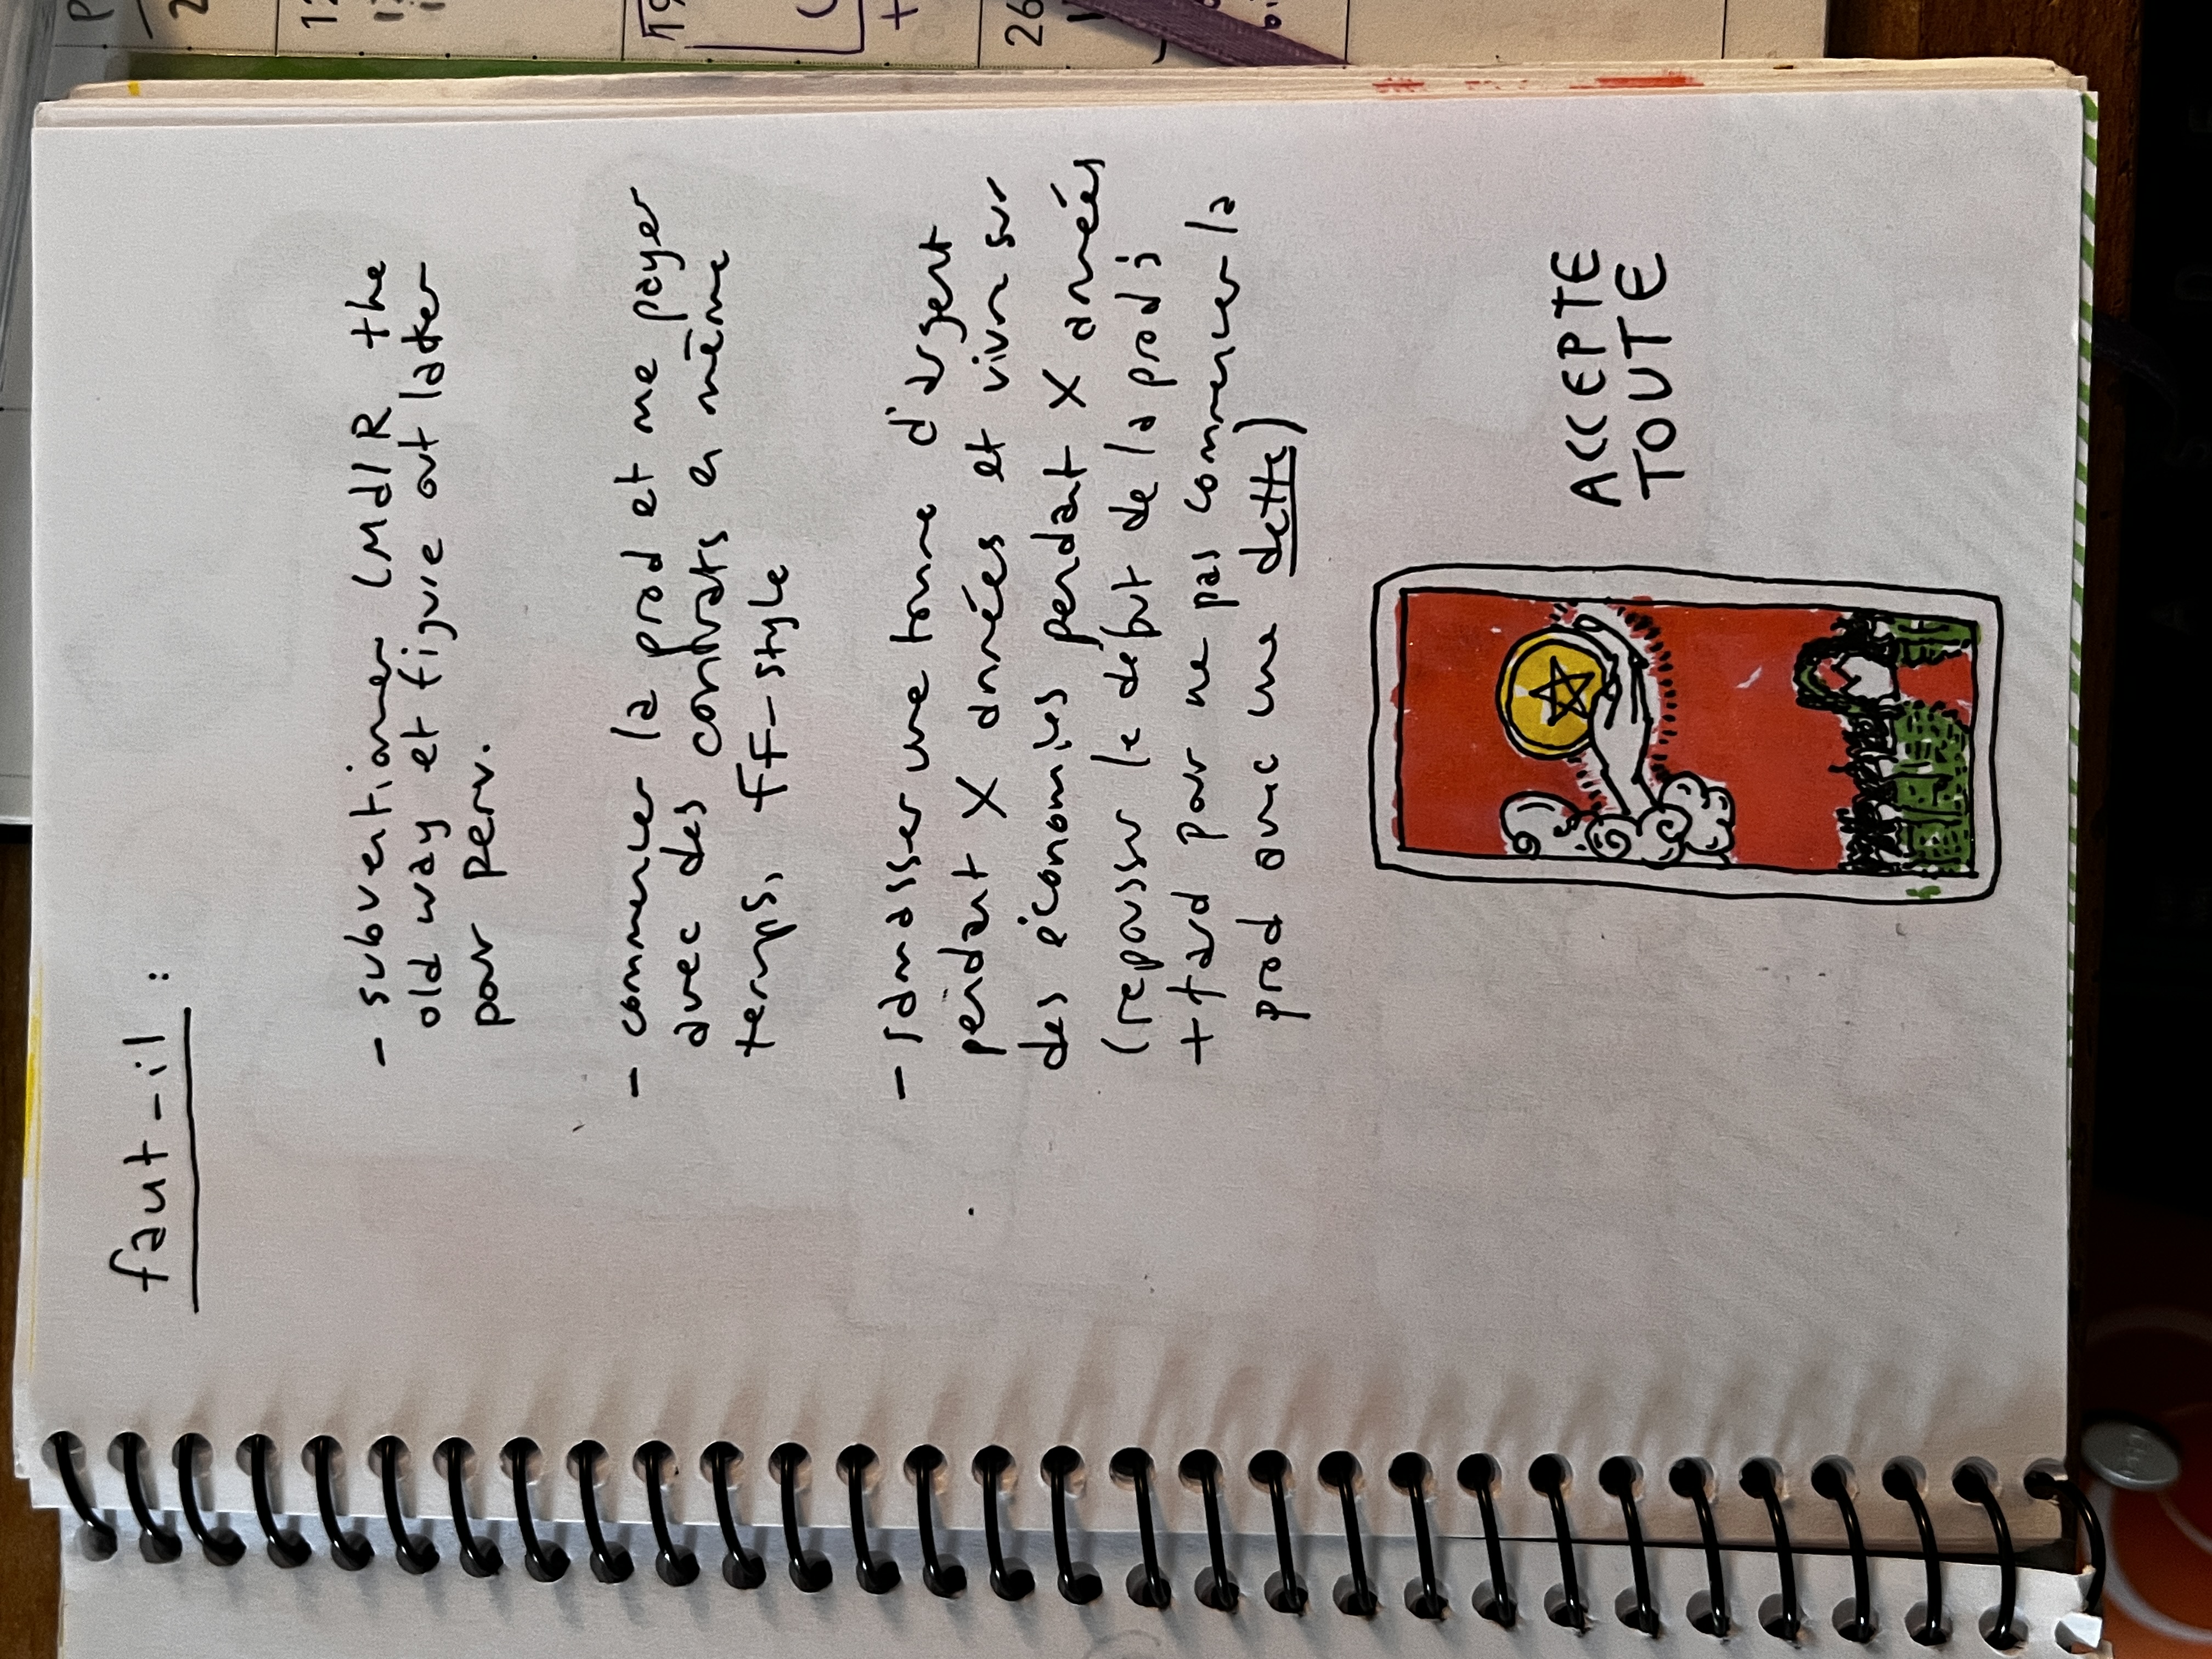 faut-il :
- subventionner LMdlR the
old way et figure out later
pour perv.
- commencer la prod et me payer
avec des contrats en même
temps, FF-style
- ramasser une tonne d'argent
pendant X années et vivre sur
des économies pendant X années
(repousser le début de la prod;
+ tard pour ne pas commencer la
prod avec une dette)
ACCEPTE
TOUTE
12
19
26